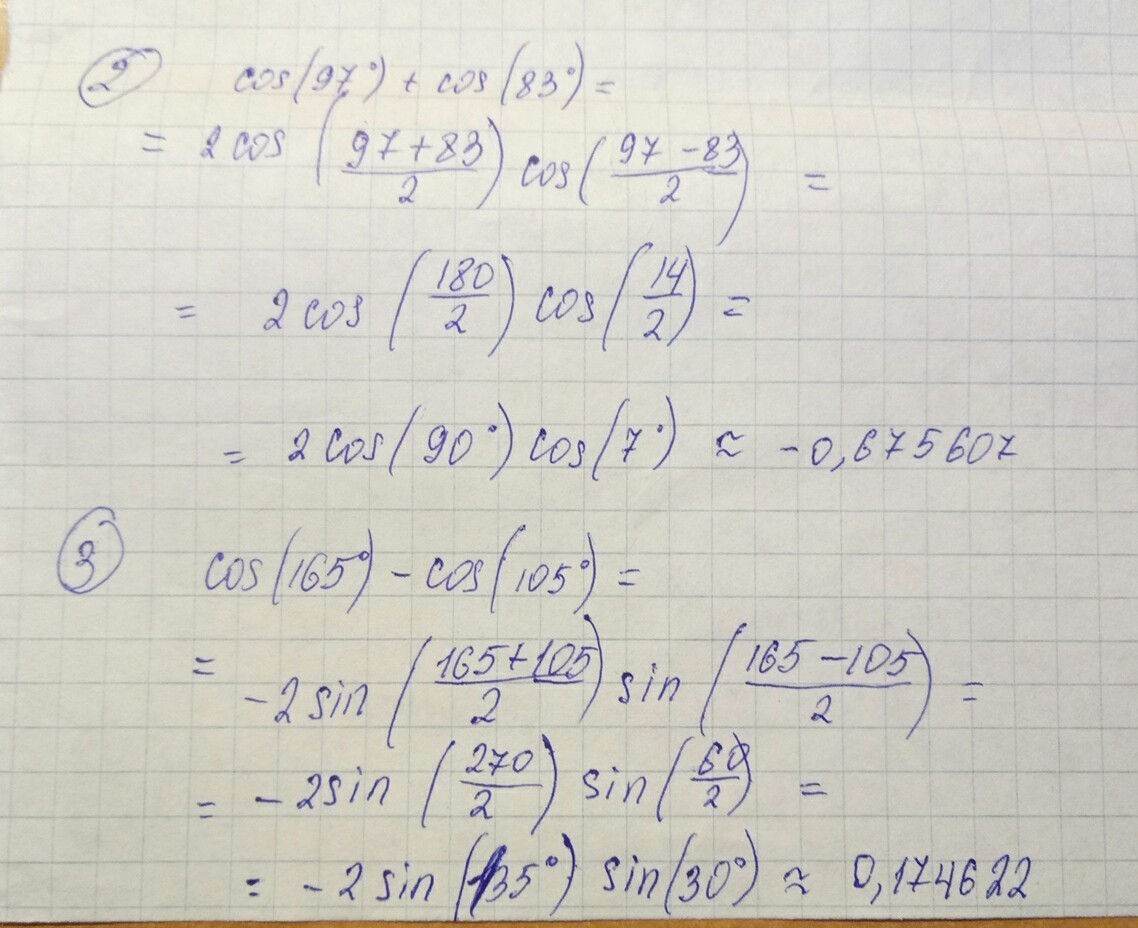 ② cos(97°) + cos(83°) =
= 2 cos ( (97+83)/2 ) cos ( (97-83)/2 ) =
= 2 cos ( 180/2 ) cos ( 14/2 ) =
= 2 cos(90°) cos(7°) ≈ -0,675607
③ cos(165°) - cos(105°) =
= -2 sin ( (165+105)/2 ) sin ( (165-105)/2 ) =
= -2 sin ( 270/2 ) sin ( 60/2 ) =
= -2 sin (135°) sin(30°) ≈ 0,174622